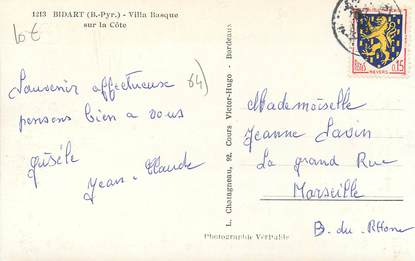 1213 BIDART (B.-Pyr.) - Villa Basque
sur la Côte
10€
64)
Souvenir affectueuse
pensons bien a vous
Gisèle
Jean-Claude
L. Chatagneau, 92, Cours Victor-Hugo - Bordeaux
0,15
NEVERS
Mademoiselle
Jeanne
La grand Rue
Marseille
B. du. Rhone
Photographie Véritable